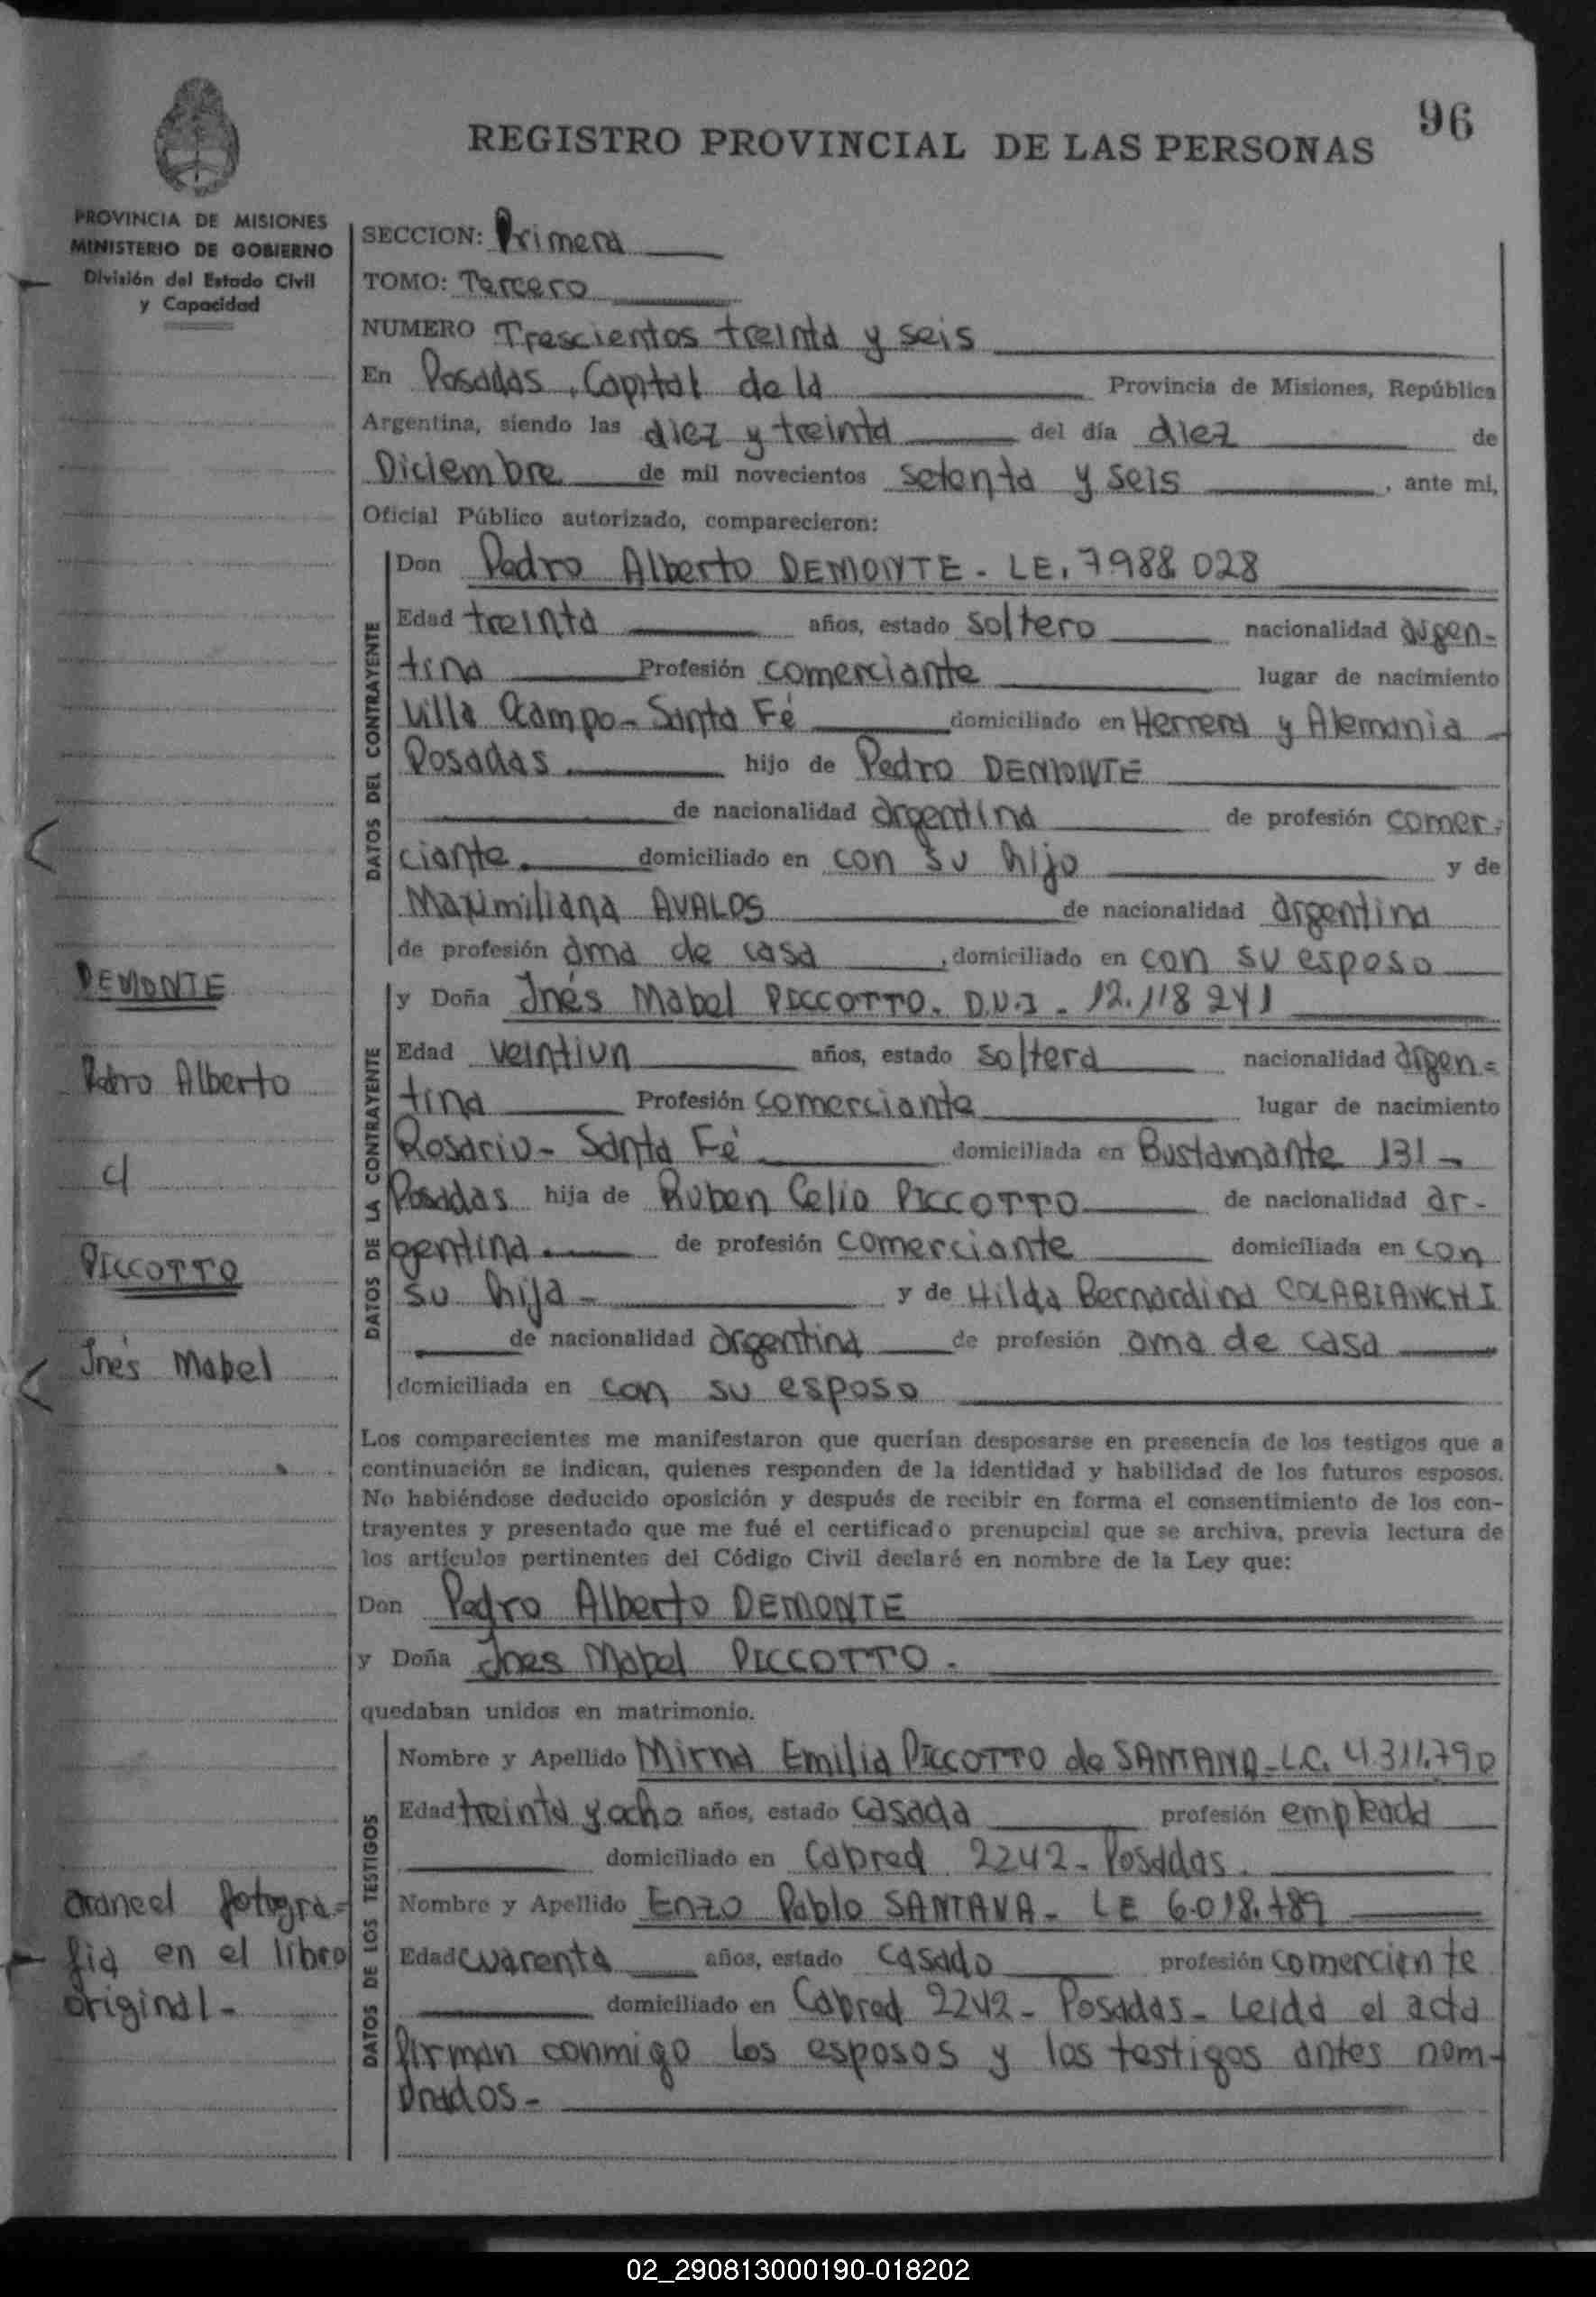 96
REGISTRO PROVINCIAL DE LAS PERSONAS
PROVINCIA DE MISIONES
MINISTERIO DE GOBIERNO
División del Estado Civil
y Capacidad
SECCION: Primera
TOMO: Tercero
NUMERO Trescientos treinta y seis
En Posadas, Capital de la Provincia de Misiones, República
Argentina, siendo las diez y treinta del día diez de
Diciembre de mil novecientos setenta y seis, ante mi,
Oficial Público autorizado, comparecieron:
DATOS DEL CONTRAYENTE
Don Pedro Alberto DEMONTE - LE. 7988 028
Edad treinta años, estado soltero nacionalidad argen-
tina Profesión comerciante lugar de nacimiento
Villa Ocampo - Santa Fé domiciliado en Herrera y Alemania -
Posadas. hijo de Pedro DEMONTE
de nacionalidad argentina de profesión comer-
ciante. domiciliado en con su hijo y de
Maximiliana AVALOS de nacionalidad argentina
de profesión ama de casa, domiciliado en con su esposo
DATOS DE LA CONTRAYENTE
y Doña Inés Mabel PICCOTTO. D.N.I - 12.118 241
Edad veintiun años, estado soltera nacionalidad argen=
tina Profesión comerciante lugar de nacimiento
Rosario - Santa Fé domiciliada en Bustamante 131 -
Posadas hija de Ruben Celio PICCOTTO de nacionalidad ar-
gentina. de profesión comerciante domiciliada en con
su hija - y de Hilda Bernardina COLABIANCHI
de nacionalidad argentina de profesión ama de casa
domiciliada en con su esposo
Los comparecientes me manifestaron que querían desposarse en presencia de los testigos que a
continuación se indican, quienes responden de la identidad y habilidad de los futuros esposos.
No habiéndose deducido oposición y después de recibir en forma el consentimiento de los con-
trayentes y presentado que me fué el certificado prenupcial que se archiva, previa lectura de
los artículos pertinentes del Código Civil declaré en nombre de la Ley que:
Don Pedro Alberto DEMONTE
y Doña Ines Mabel PICCOTTO.
quedaban unidos en matrimonio.
DATOS DE LOS TESTIGOS
Nombre y Apellido Mirna Emilia PICCOTTO de SANTANA - L.C. 4.311.790
Edad treinta y ocho años, estado casada profesión empleada
domiciliado en Cabred 2242 - Posadas.
Nombre y Apellido Enzo Pablo SANTANA - LE 6.018.789
Edad cuarenta años, estado casado profesión comerciante
domiciliado en Cabred 2242 - Posadas - Leida el acta
firman conmigo los esposos y los testigos antes nom-
brados -
DEMONTE
Pedro Alberto
c/
PICCOTTO
Inés Mabel
Arancel fotogra=
fia en el libro
original -
02_290813000190-018202